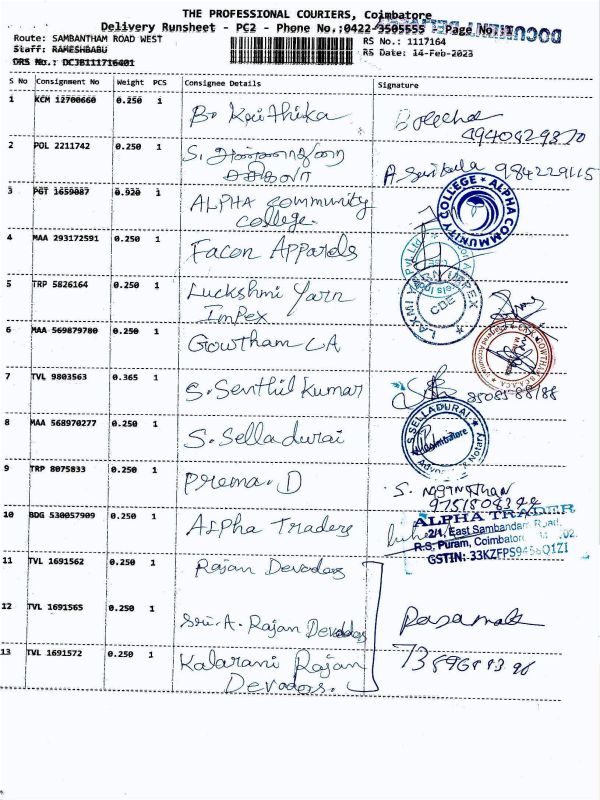 THE PROFESSIONAL COURIERS, Coimbatore
Delivery Runsheet - PC2 - Phone No.:0422-3505555 - Page No.:1
Route: SAMBANTHAM ROAD WEST
RS No.: 1117164
Staff: RAMESHBABU
RS Date: 14-Feb-2023
DRS No.: DCJB111716401
S No Consignment No Weight PCS Consignee Details Signature
1 KCM 12700660 0.250 1 B. Keerthika
2 POL 2211742 0.250 1 S.
984229115
3 PGT 1659087 0.920 1 ALPHA community
college.
COLLEGE ALPHA COMMUNITY
4 MAA 293172591 0.250 1 Facon Apparels
5 TRP 5826164 0.250 1 Luckshmi Yarn
Impex
LAXMI YARN IMPEX
CBE
6 MAA 569879780 0.250 1 Gowtham CA
7 TVL 9803563 0.365 1 S. Senthil Kumar
8508588188
8 MAA 568970277 0.250 1 S. Selladurai
S.SELLADURAI
Coimbatore
Advocate & Notary
9 TRP 8075833 0.250 1 Prema. D
S. Naganathan
10 BDG 530057909 0.250 1 Alpha Traders
ALPHA TRADER
2/1, East Sambandam Road,
R.S. Puram, Coimbatore
11 TVL 1691562 0.250 1 Rajan Devadas
12 TVL 1691565 0.250 1 Sri. A. Rajan Devadas
13 TVL 1691572 0.250 1 Kalarani Rajan
Devadas.